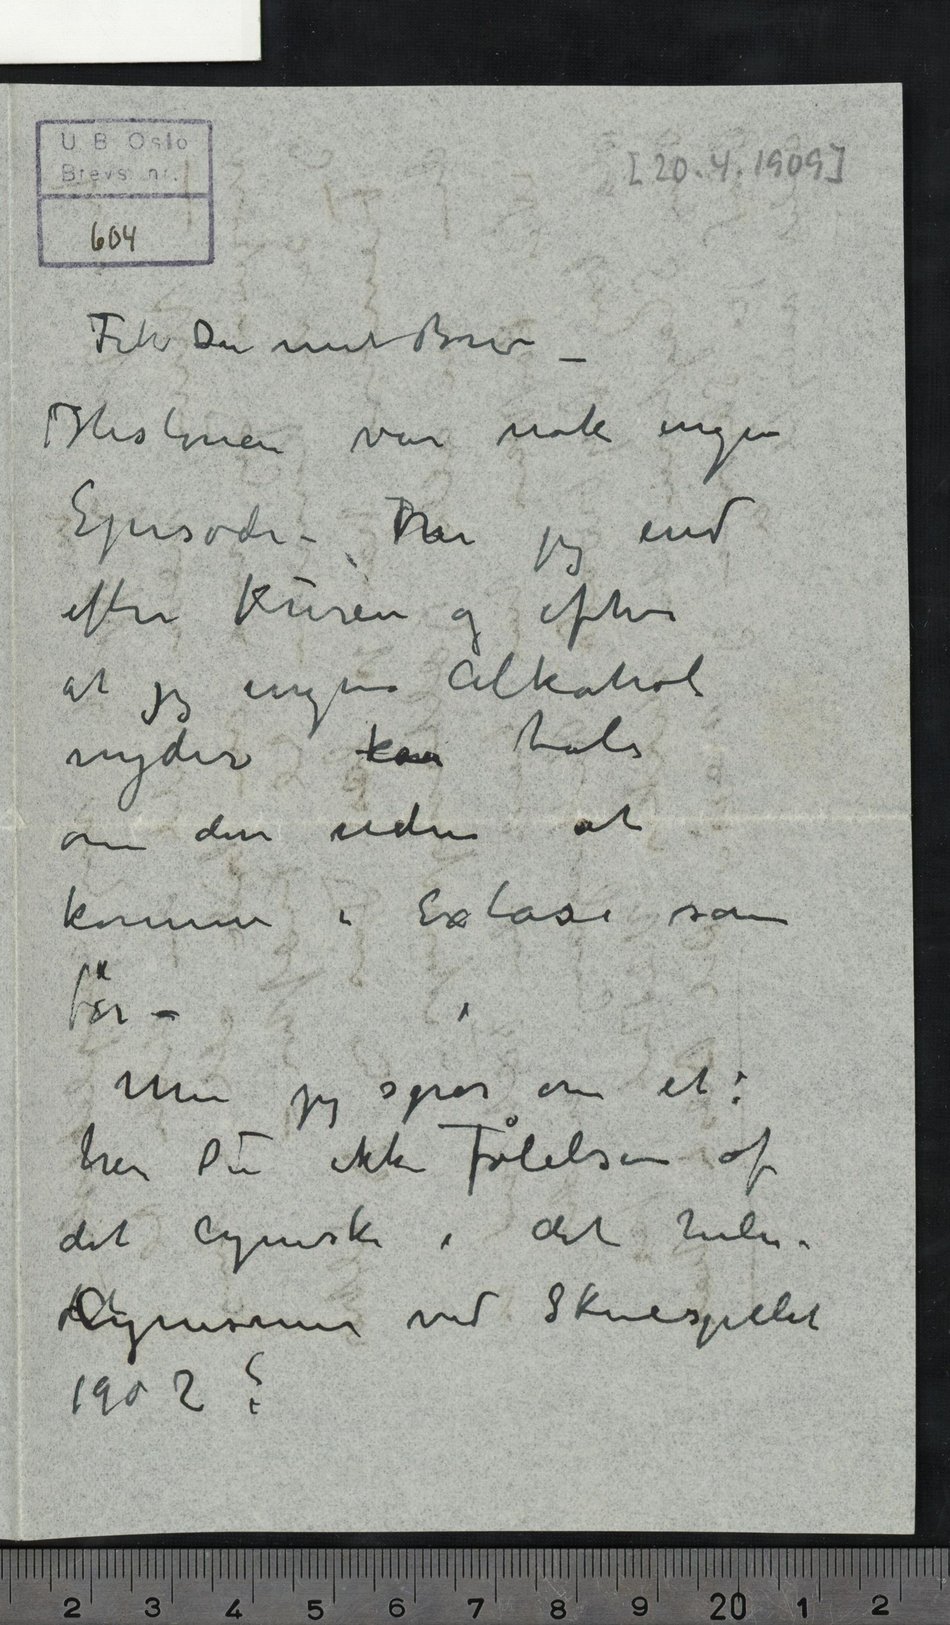 U B Oslo
Brevs. nr.
604
[20.4.1909]
Fik Du mit Brev –
Historien var nok ingen
Episode – Naar jeg end
efter Kuren og efter
at jeg ingen Alkohol
nyder kan tale
om den uden at
komme i Extase som
før –
Men jeg spør om et:
har Du ikke Følelsen af
det cyniske i det hele.
Cynismen ved Skuespillet
1902?
2 3 4 5 6 7 8 9 20 1 2